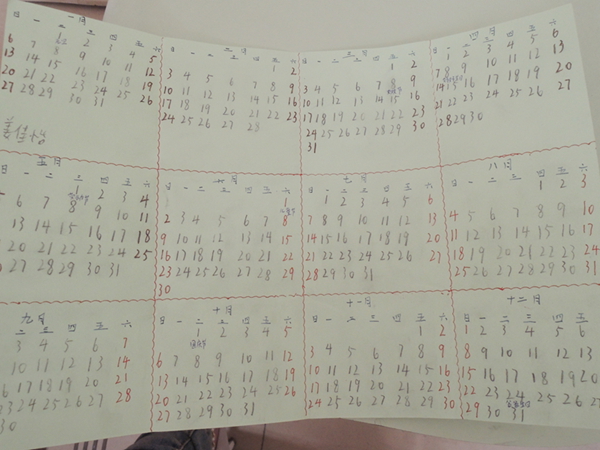 一月
日 一 二 三 四 五 六
1 2 3 4 5
6 7 8 9 10 11 12
13 14 15 16 17 18 19
20 21 22 23 24 25 26
27 28 29 30 31
二月
日 一 二 三 四 五 六
1 2
3 4 5 6 7 8 9
10 11 12 13 14 15 16
17 18 19 20 21 22 23
24 25 26 27 28
三月
日 一 二 三 四 五 六
1 2
3 4 5 6 7 8 9
10 11 12 13 14 15 16
17 18 19 20 21 22 23
24 25 26 27 28 29 30
31
四月
日 一 二 三 四 五 六
1 2 3 4 5 6
7 8 9 10 11 12 13
14 15 16 17 18 19 20
21 22 23 24 25 26 27
28 29 30
五月
一 二 三 四 五 六
1 2 3 4
6 7 8 9 10 11
13 14 15 16 17 18
20 21 22 23 24 25
27 28 29 30 31
六月
日 一 二 三 四 五 六
1
2 3 4 5 6 7 8
9 10 11 12 13 14 15
16 17 18 19 20 21 22
23 24 25 26 27 28 29
30
月
日 一 二 三 四 五 六
1 2 3 4 5 6
7 8 9 10 11 12 13
14 15 16 17 18 19 20
21 22 23 24 25 26 27
28 29 30 31
八月
日 一 二 三 四 五 六
1 2 3
4 5 6 7 8 9 10
11 12 13 14 15 16 17
18 19 20 21 22 23 24
25 26 27 28 29 30 31
九月
二 三 四 五 六
3 4 5 6 7
10 11 12 13 14
17 18 19 20 21
23 24 25 26 27 28
30
十月
日 一 二 三 四 五 六
1 2 3 4 5
6 7 8 9 10 11 12
13 14 15 16 17 18 19
20 21 22 23 24 25 26
27 28 29 30 31
十一月
日 一 二 三 四 五 六
1 2
3 4 5 6 7 8 9
10 11 12 13 14 15 16
17 18 19 20 21 22 23
24 25 26 27 28 29 30
十二月
日 一 二 三 四 五 六
1 2 3 4 5 6
8 9 10 11 12 13
15 16 17 18 19 20
22 23 24 25 26 27
29 30 31